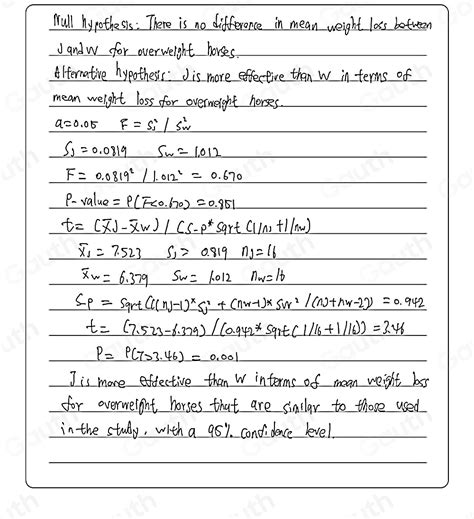 Null hypothesis: There is no difference in mean weight loss between
J and W for overweight horses.
Alternative hypothesis: J is more effective than W in terms of
mean weight loss for overweight horses.
a=0.05 F = Sj² / Sw²
Sj = 0.0819 Sw = 1.012
F = 0.0819² / 1.012² = 0.670
P-value = P(F<0.670) = 0.851
t = (x̄J - x̄w) / (S-p* sqrt (1/nJ + 1/nw)
x̄J = 7.523 SJ > 0.819 nJ = 16
x̄w = 6.379 Sw = 1.012 nw = 16
S-p = sqrt (((nJ-1)* SJ² + (nw-1)* sw² / (nJ + nw-2)) = 0.942
t = (7.523-6.379) / (0.942* sqrt (1/16 + 1/16)) = 3.46
P = P(T>3.46) = 0.001
J is more effective than W in terms of mean weight loss
for overweight horses that are similar to those used
in the study, with a 95% confidence level.